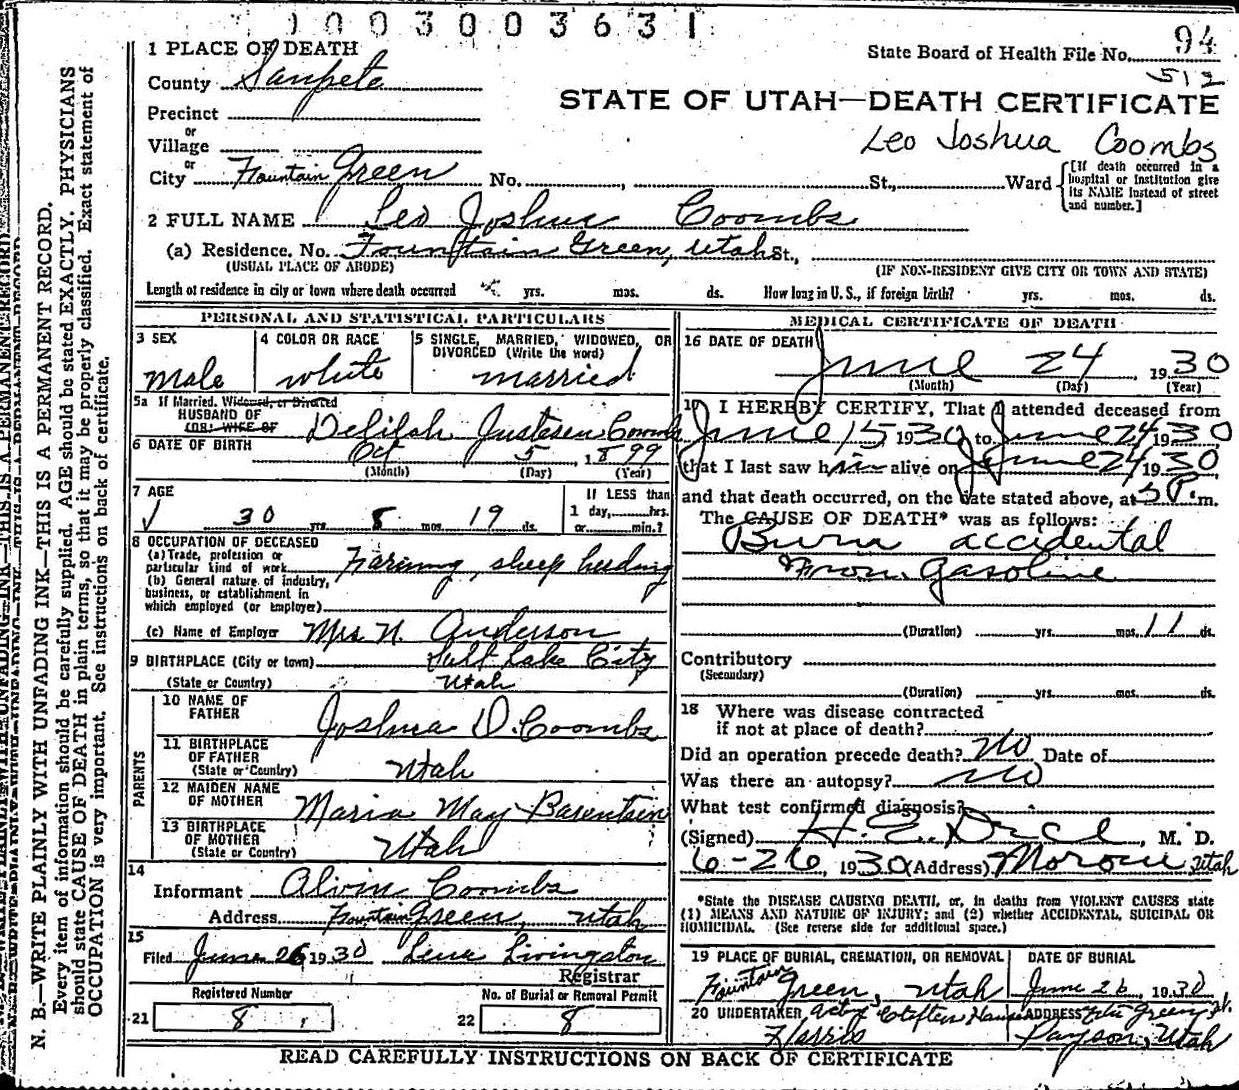 003003631
1 PLACE OF DEATH
State Board of Health File No. 94
512
County Sanpete
STATE OF UTAH—DEATH CERTIFICATE
Precinct
or
Leo Joshua Coombs
Village
or
City Fountain Green No. , St., Ward
[If death occurred in a hospital or institution give its NAME instead of street and number.]
2 FULL NAME Leo Joshua Coombs
(a) Residence. No. Fountain Green, Utah St.,
(USUAL PLACE OF ABODE) (IF NON-RESIDENT GIVE CITY OR TOWN AND STATE)
Length of residence in city or town where death occurred yrs. mos. ds. How long in U. S., if foreign birth? yrs. mos. ds.
PERSONAL AND STATISTICAL PARTICULARS
3 SEX
Male
4 COLOR OR RACE
white
5 SINGLE, MARRIED, WIDOWED, OR DIVORCED (Write the word)
married
5a If Married, Widowed, or Divorced
HUSBAND OF
(OR) WIFE OF
Delilah Justesen Coombs
6 DATE OF BIRTH Oct 5, 1899
(Month) (Day) (Year)
7 AGE
30 yrs. 8 mos. 19 ds.
If LESS than
1 day, hrs.
or min.?
8 OCCUPATION OF DECEASED
(a) Trade, profession or
particular kind of work Farming, sheep herding
(b) General nature of industry,
business, or establishment in
which employed (or Employer)
(c) Name of Employer Mrs N. Anderson
9 BIRTHPLACE (City or town) Salt Lake City
(State or Country) Utah
PARENTS
10 NAME OF
FATHER Joshua D. Coombs
11 BIRTHPLACE
OF FATHER
(State or Country) Utah
12 MAIDEN NAME
OF MOTHER Maria May Barentsen
13 BIRTHPLACE
OF MOTHER
(State or Country) Utah
14
Informant Alvin Coombs
Address Fountain Green, Utah
15
Filed June 26 1930 Lena Livingston
Registrar
Registered Number
21 8
No. of Burial or Removal Permit
22 8
MEDICAL CERTIFICATE OF DEATH
16 DATE OF DEATH
June 24, 1930
(Month) (Day) (Year)
17 I HEREBY CERTIFY, That I attended deceased from
June 15 1930 to June 24 1930
that I last saw him alive on June 24, 1930
and that death occurred, on the date stated above, at 5 P. m.
The CAUSE OF DEATH* was as follows:
Burn accidental
from gasoline
(Duration) yrs. mos. 11 ds.
Contributory
(Secondary)
(Duration) yrs. mos. ds.
18 Where was disease contracted
if not at place of death?
Did an operation precede death? No Date of
Was there an autopsy? no
What test confirmed diagnosis?
(Signed) H. E. , M. D.
6-26, 1930 (Address) Moroni Utah
*State the DISEASE CAUSING DEATH, or, in deaths from VIOLENT CAUSES state
(1) MEANS AND NATURE OF INJURY; and (2) whether ACCIDENTAL, SUICIDAL OR
HOMICIDAL. (See reverse side for additional space.)
19 PLACE OF BURIAL, CREMATION, OR REMOVAL
Fountain Green, Utah
DATE OF BURIAL
June 26, 1930
20 UNDERTAKER
ADDRESS
Payson, Utah
READ CAREFULLY INSTRUCTIONS ON BACK OF CERTIFICATE
N. B.—WRITE PLAINLY WITH UNFADING INK—THIS IS A PERMANENT RECORD.
Every item of information should be carefully supplied. AGE should be stated EXACTLY. PHYSICIANS
should state CAUSE OF DEATH in plain terms, so that it may be properly classified. Exact statement of
OCCUPATION is very important. See instructions on back of certificate.